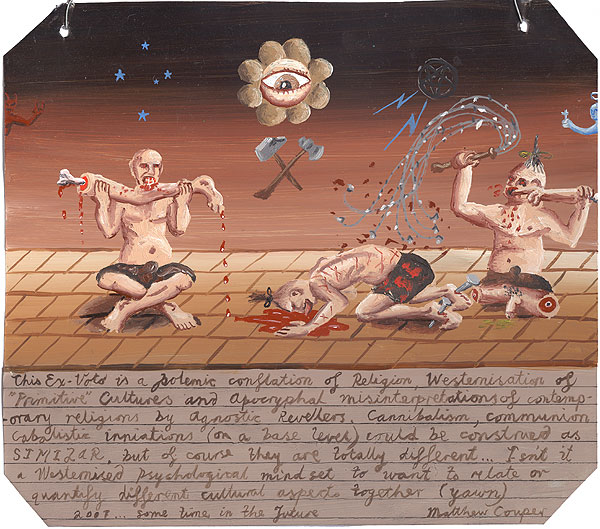 This Ex-Voto is a Polemic conflation of Religion, Westernisation of
"Primitive" Cultures and Apocryphal misinterpretations of contemp-
orary religions by Agnostic Revellers. Cannibalism, communion
Cabalistic inniations (on a base level) could be construed as
SIMILAR, but of course they are totally different... Isnt it
a Westernised Psychological mind set to want to relate or
quantify different cultural aspects together (yawn)
2007... some time in the future Matthew Couper